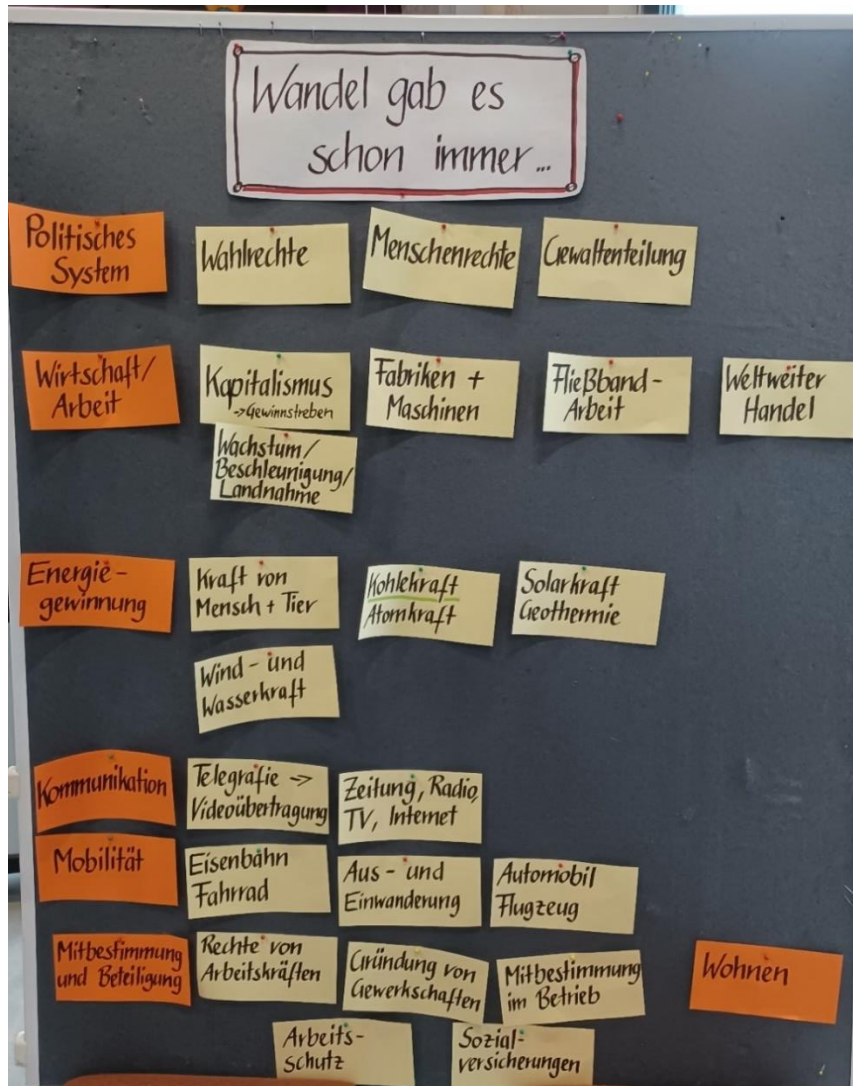 Wandel gab es
schon immer...
Politisches
System
Wahlrechte
Menschenrechte
Gewaltenteilung
Wirtschaft/
Arbeit
Kapitalismus
->Gewinnstreben
Wachstum/
Beschleunigung/
Landnahme
Fabriken +
Maschinen
Fließband-
Arbeit
Weltweiter
Handel
Energie-
gewinnung
Kraft von
Mensch + Tier
Kohlekraft
Atomkraft
Solarkraft
Geothermie
Wind- und
Wasserkraft
Kommunikation
Telegrafie ->
Videoübertragung
Zeitung, Radio,
TV, Internet
Mobilität
Eisenbahn
Fahrrad
Aus- und
Einwanderung
Automobil
Flugzeug
Mitbestimmung
und Beteiligung
Rechte von
Arbeitskräften
Gründung von
Gewerkschaften
Mitbestimmung
im Betrieb
Wohnen
Arbeits-
schutz
Sozial-
versicherungen